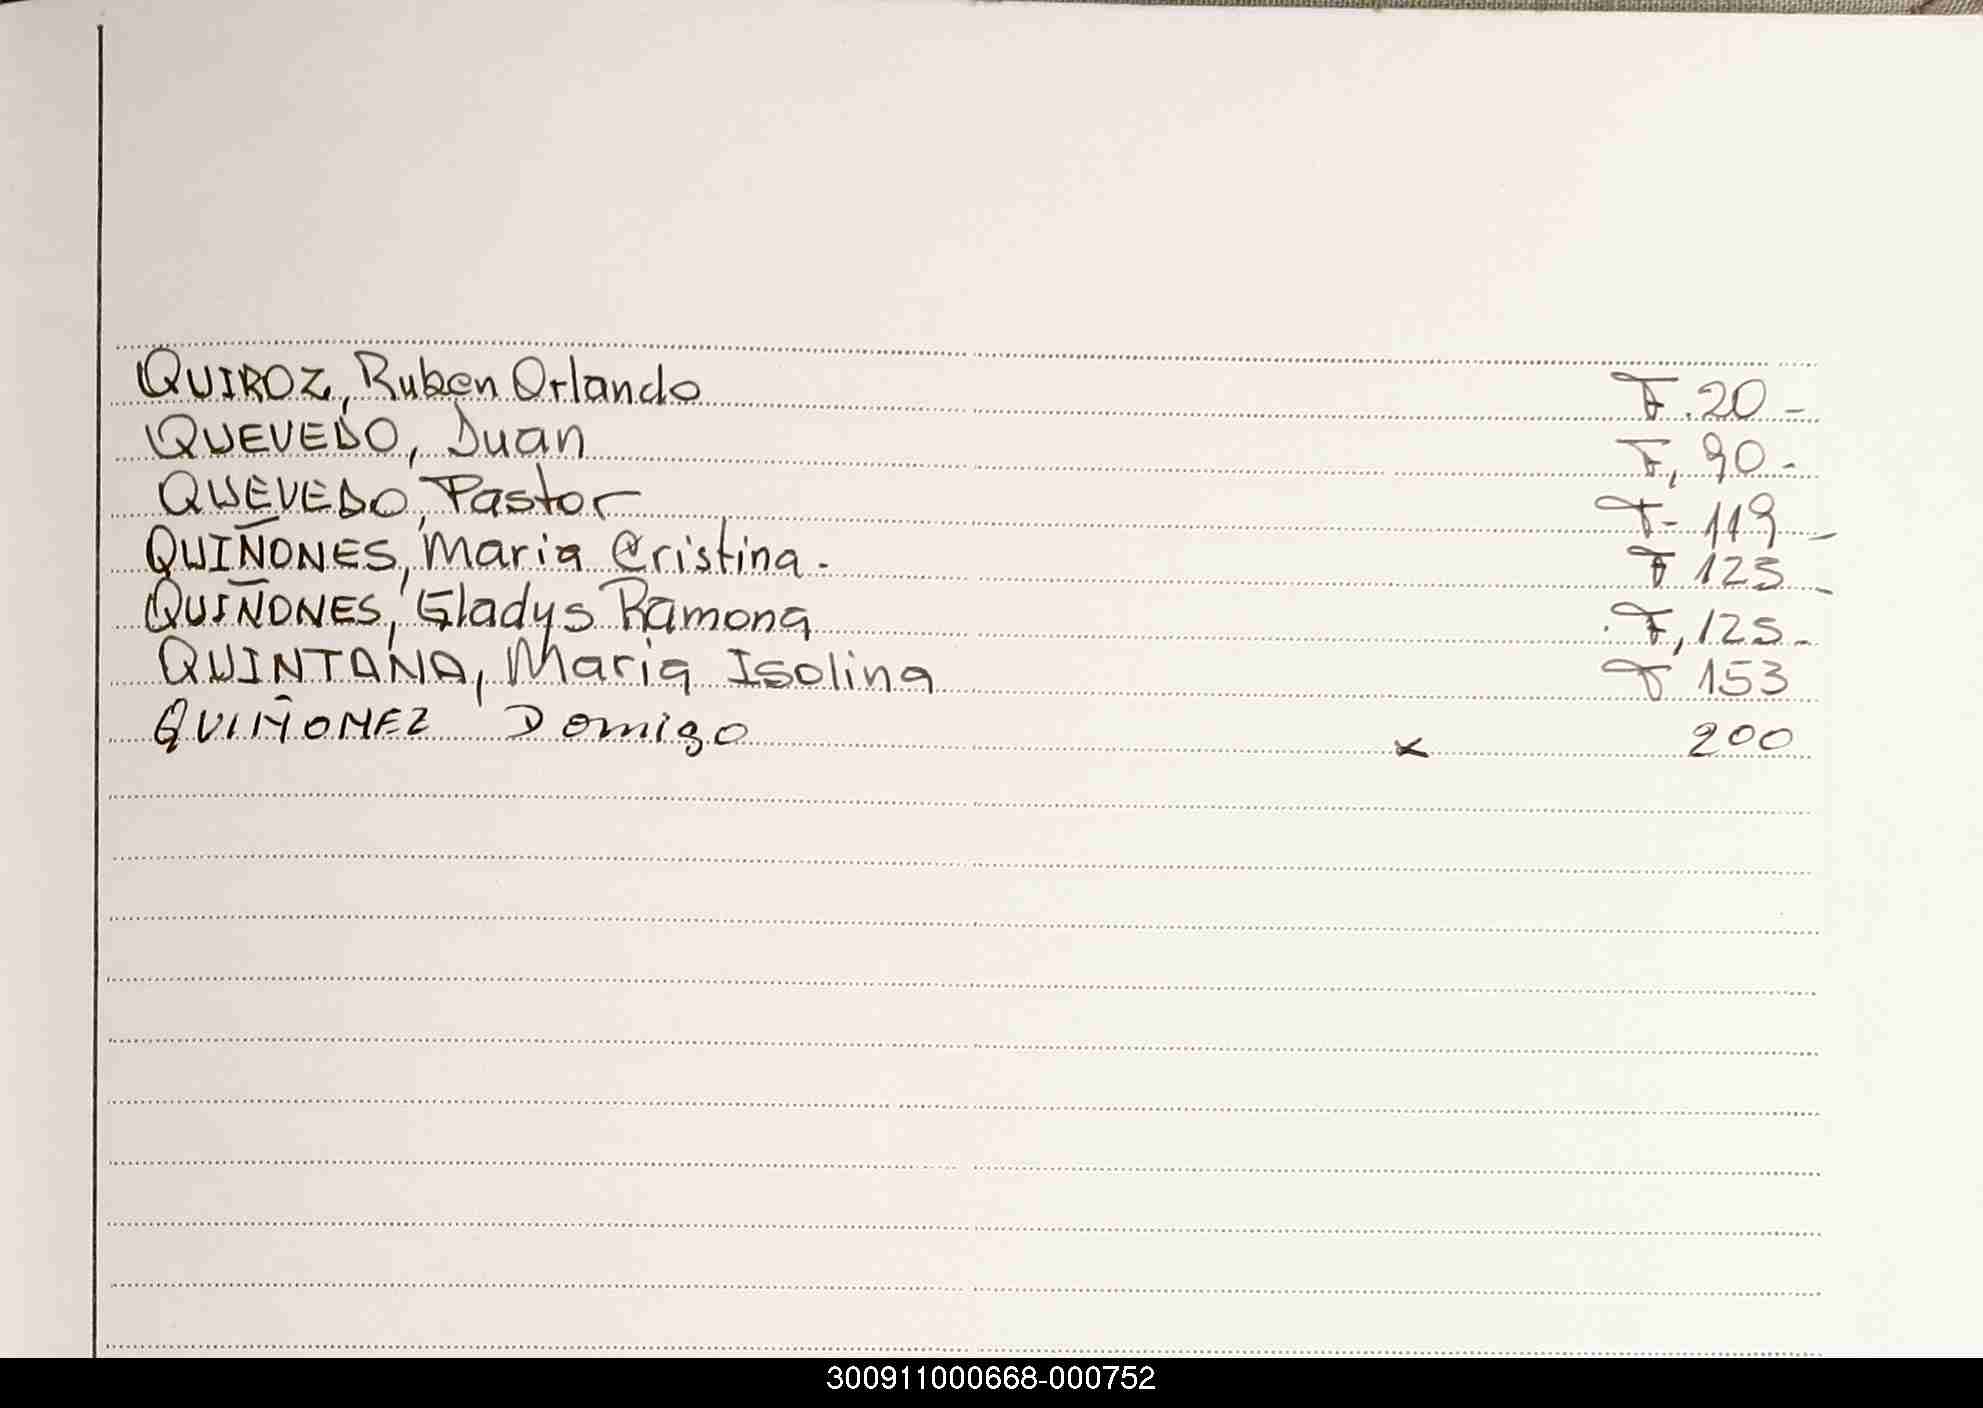 QUIROZ, Ruben Orlando F. 20 -
QUEVEDO, Juan F, 90 -
QUEVEDO, Pastor F - 119 -
QUIÑONES, Maria Cristina. F 125 -
QUIÑONES, Gladys Ramona F, 125 -
QUINTANA, Maria Isolina F 153
QUIÑONEZ Domigo x 200
300911000668-000752